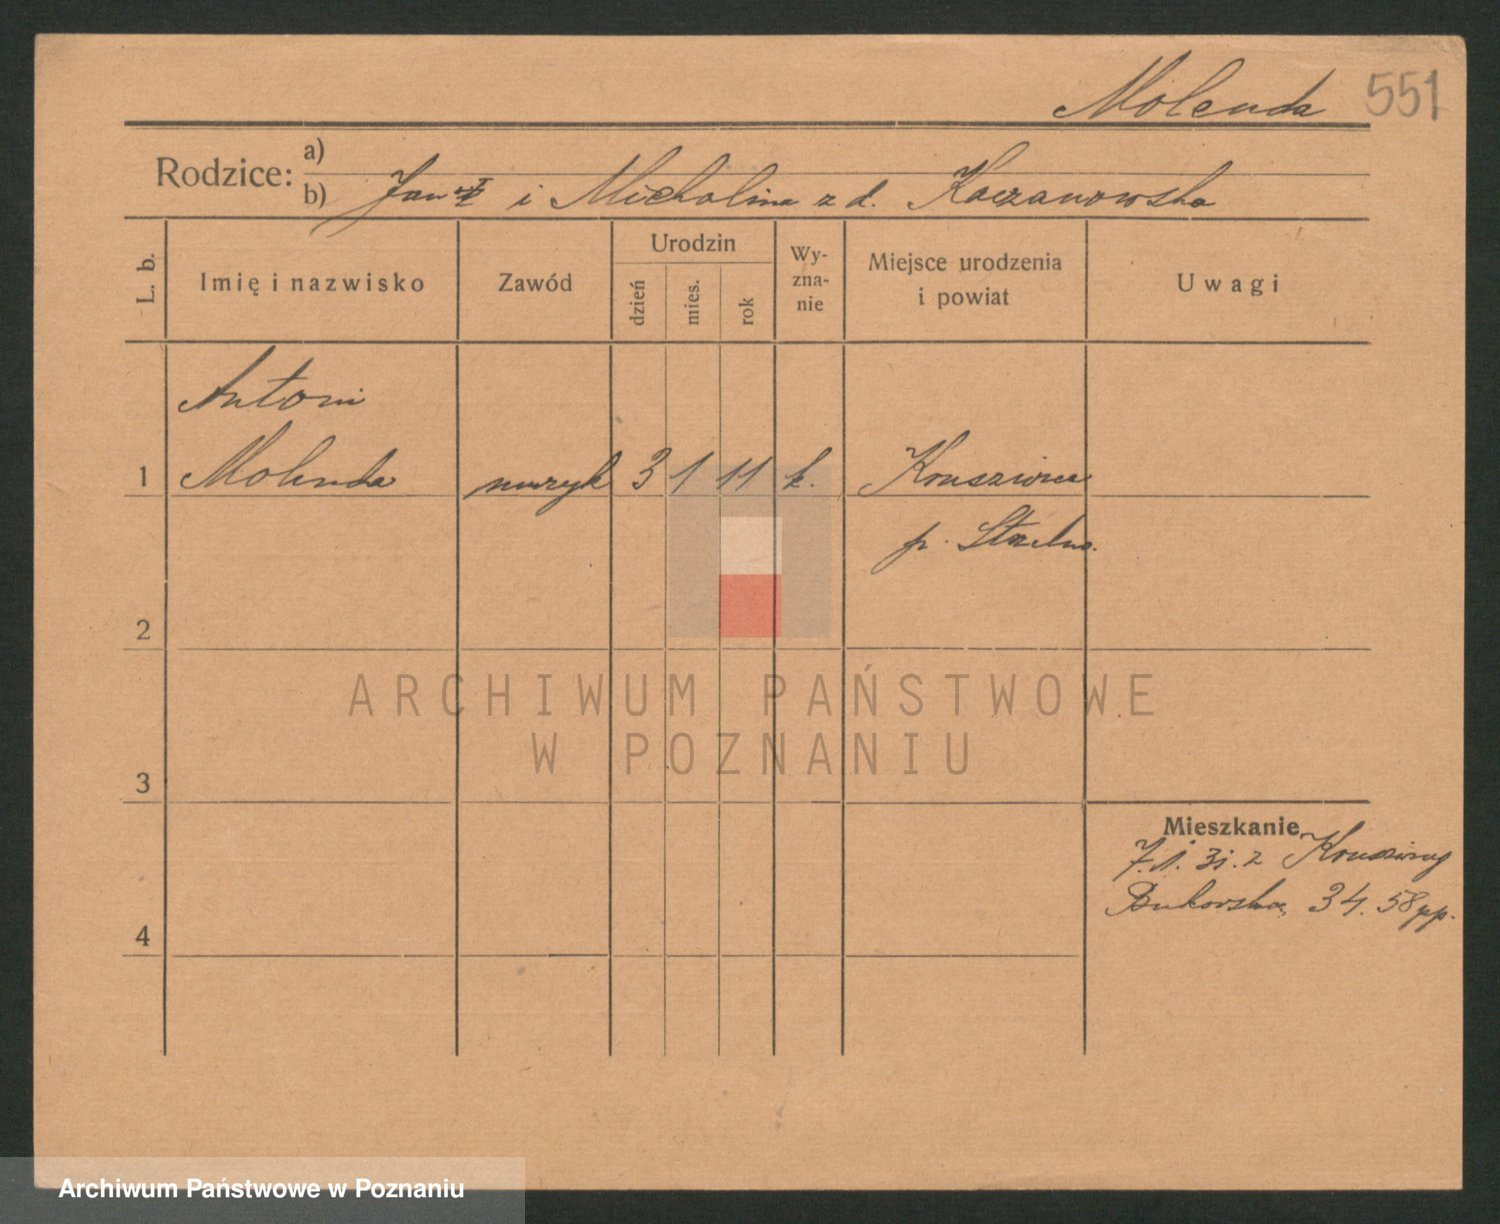 Molenda 551
Rodzice: a)
b) Jan i Michalina z d. Kaczanowska
L. b.
Imię i nazwisko
Zawód
Urodzin
dzień
mies.
rok
Wy-
zna-
nie
Miejsce urodzenia
i powiat
Uwagi
Antoni
1 Molenda muzyk 3 1 11 k. Kruszwica
p. Strzelno.
2
ARCHIWUM PAŃSTWOWE
W POZNANIU
3
Mieszkanie
7.1. 31. z Kruszwicy
Bukowska 34. 58
4
Archiwum Państwowe w Poznaniu